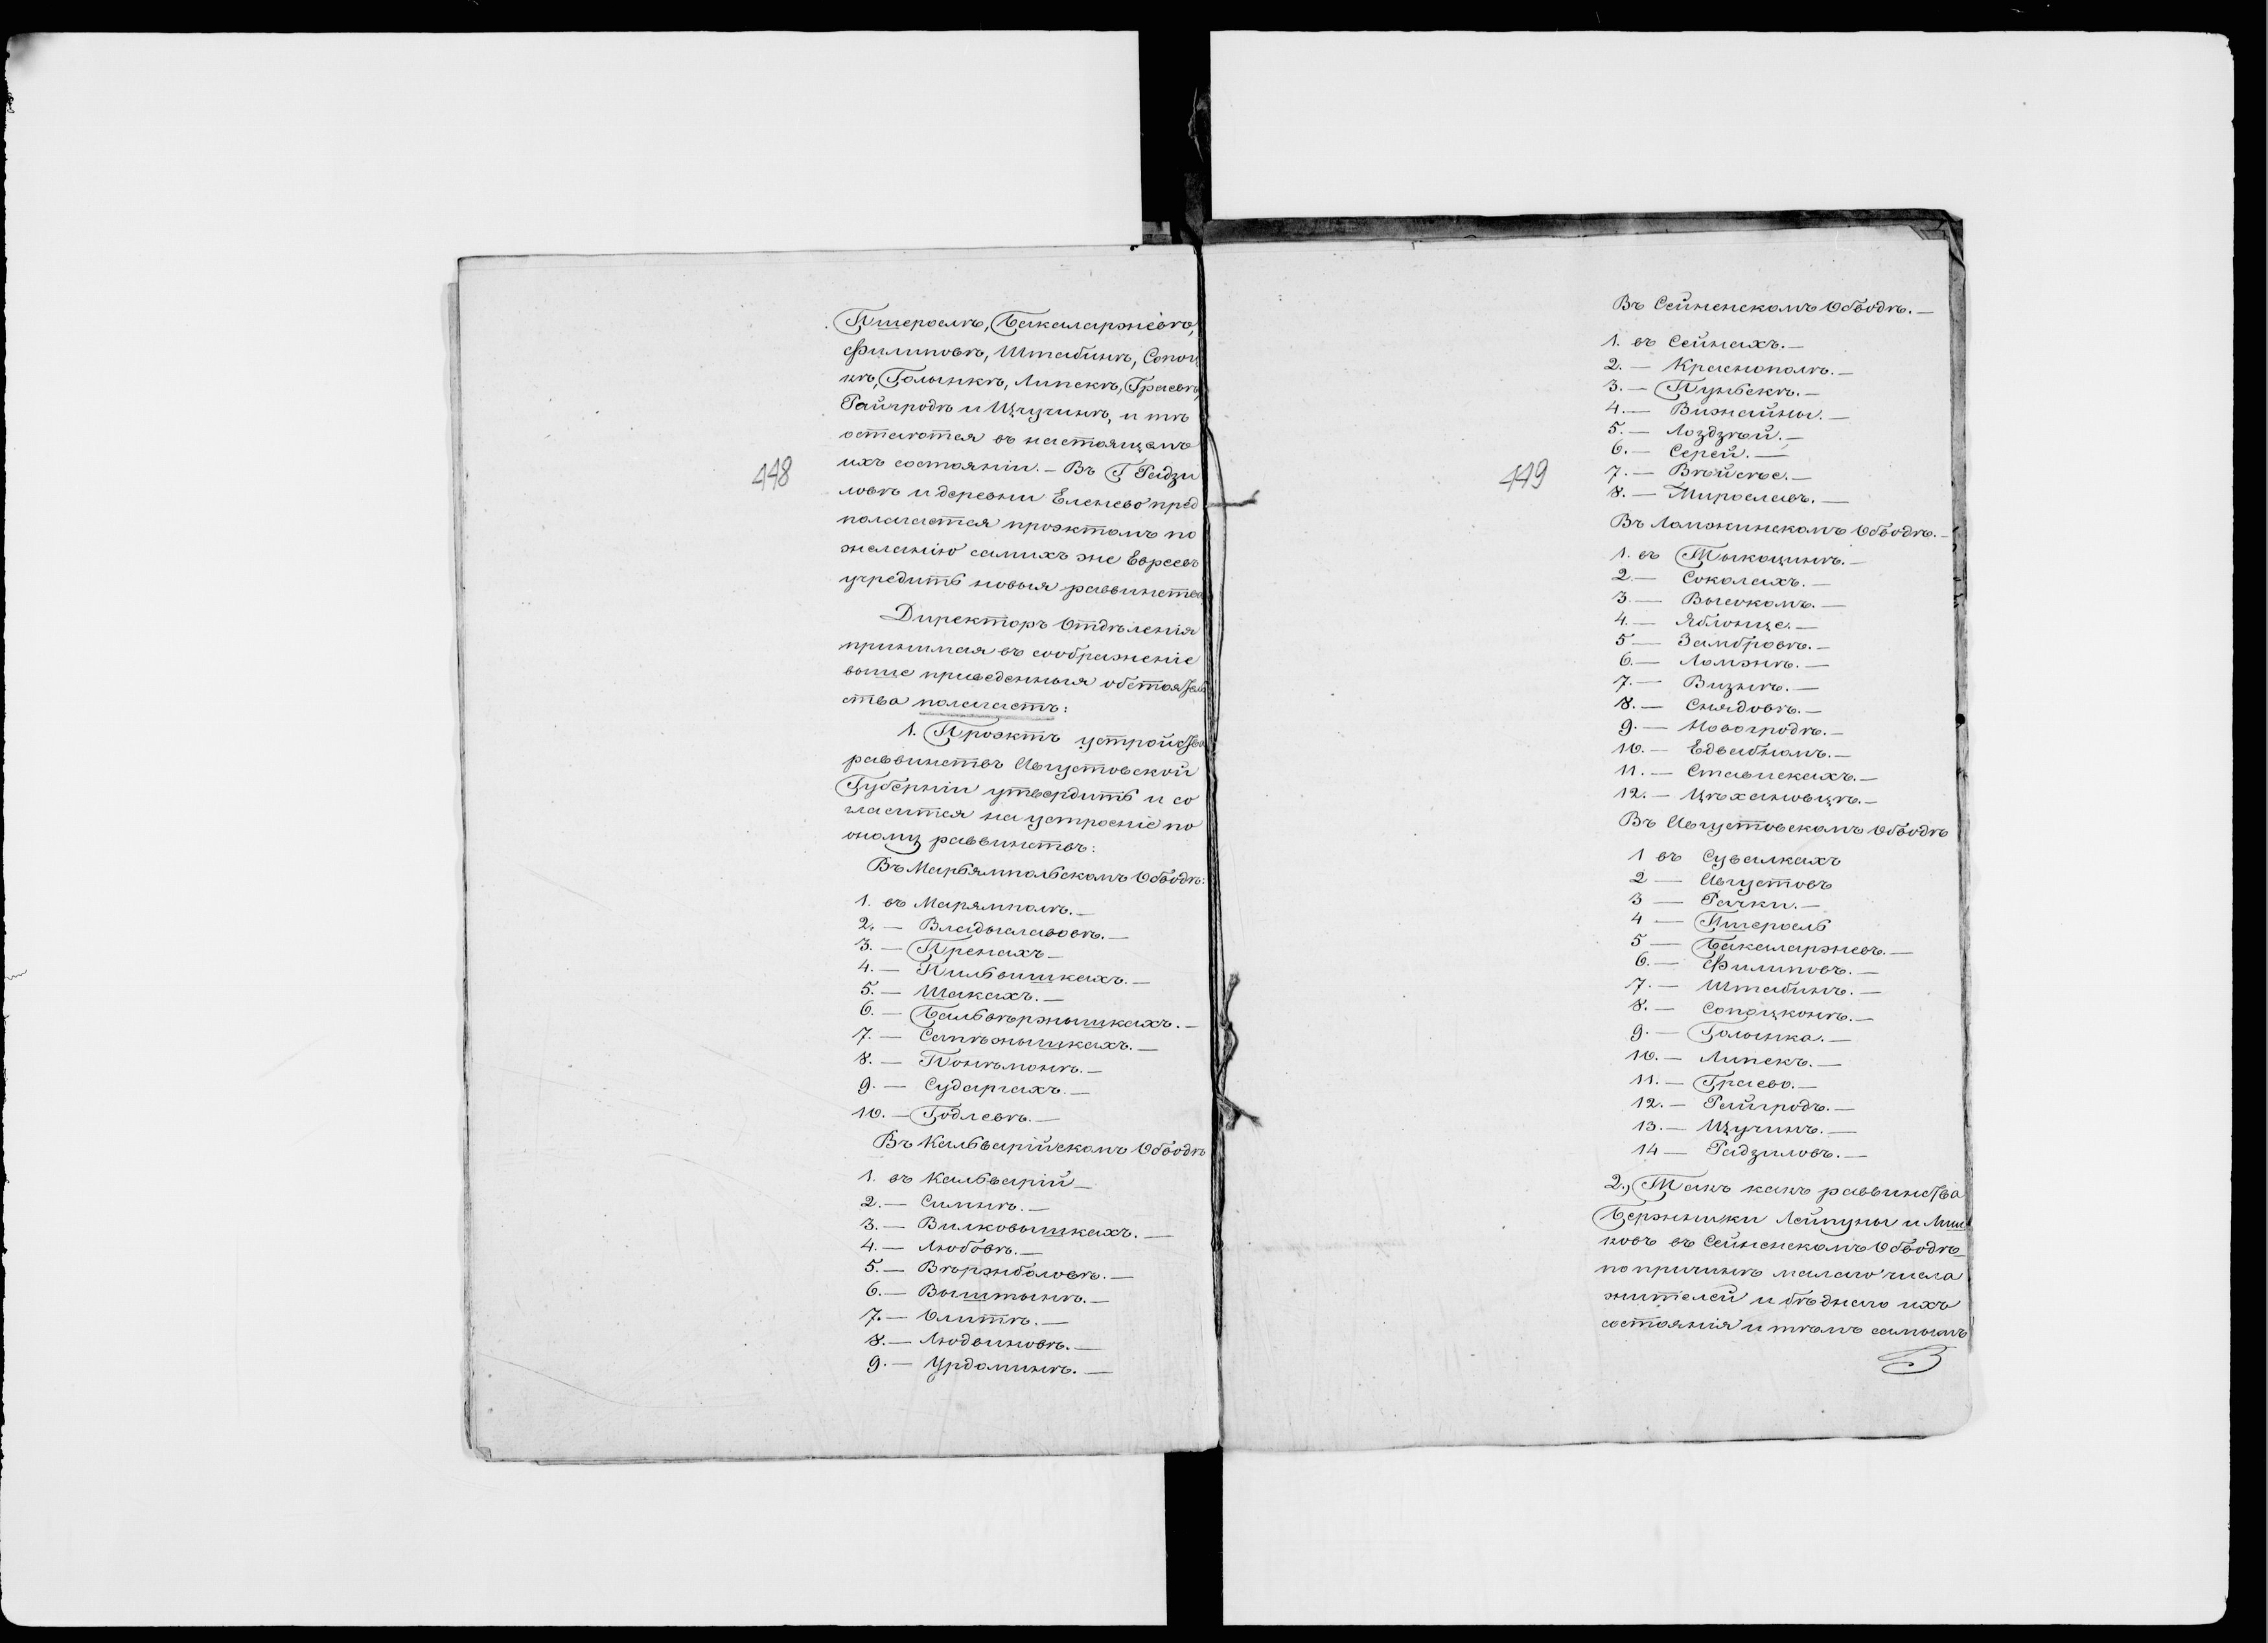 Пшерослѣ, Бакаларжевѣ,
Филиповѣ, Штабинѣ, Сопоц
кѣ, Голынкѣ, Липскѣ, Граевѣ,
Райгродѣ и Щучинѣ, и тѣ
остаются въ настоящемъ
ихъ состояніи. — Въ Г. Радзи
ловѣ и деревни Еленево пред
полагается проэктомъ по
желанію самихъ же Евреевъ
учредить новыя раввинства
Директоръ Отдѣленія
принимая въ соображеніе
выше приведенныя обстоятель
ства полагаетъ:
1. Проэктъ устройства
раввинствъ Августовской
Губерніи утвердить и со
гласится на устроеніе по
оному раввинствъ:
Въ Марьямпольскомъ Обводѣ:
1. въ Марямполѣ. —
2. — Владыславовѣ. —
3. — Пренахъ —
4. — Пильвишкахъ. —
5. — Шакахъ. —
6. — Бальвѣржишкахъ. —
7. — Сапѣжишкахъ. —
8. — Понѣмонѣ. —
9. — Сударгахъ. —
10. — Годлевѣ. —
Въ Кальварійскомъ Обводѣ
1. въ Кальварій —
2. — Симнѣ. —
3. — Вилковышкахъ. —
4. — Любовѣ. —
5. — Вѣржболовѣ. —
6. — Выштынѣ. —
7. — Олитѣ. —
8. — Людвиновѣ. —
9. — Урдоминѣ. —
448
Въ Сейненскомъ Обводѣ. —
1. въ Сейнахъ. —
2. — Краснополѣ. —
3. — Пуньскѣ. —
4. — Вижайны. —
5. — Лоздзѣй. —
6. — Серей. —
7. — Вѣйсѣе. —
8. — Мирославъ. —
Въ Ломжинскомъ Обводѣ. —
1. въ Тыкоцинѣ. —
2. — Соколахъ. —
3. — Высокомъ. —
4. — Яблонце. —
5 — Замбровѣ. —
6. — Ломжѣ. —
7. — Визнѣ. —
8. — Снядовѣ. —
9. — Новогродѣ. —
10. — Едвабномъ. —
11. — Ставискахъ. —
12. — Цѣхановцѣ. —
Въ Августовскомъ Обводѣ
1 въ Сувалкахъ
2 — Августовъ
3 — Рачки. —
4 — Пшерослъ
5 — Бакаларжевъ. —
6. — Филиповъ. —
7. — Штабинъ. —
8. — Сопоцконѣ. —
9. — Голынка. —
10. — Липскъ. —
11. — Граево. —
12. — Райгродъ. —
13. — Щучинъ. —
14 — Радзиловъ. —
2., Такъ какъ раввинства
Бержники Лейпуны и Миш
ковъ въ Сейненскомъ Обводѣ
по причинѣ малаго числа
жителей и бѣднаго ихъ
состоянія и тѣмъ самымъ
449